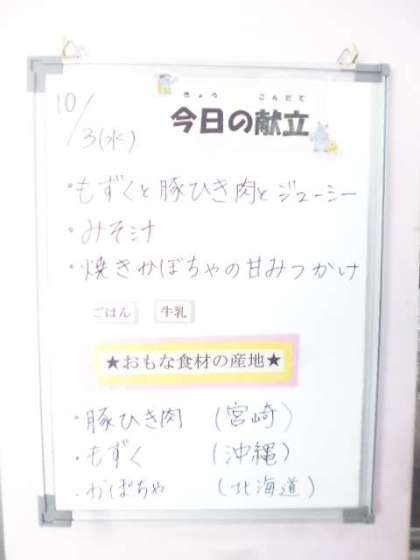 10/3(水)
きょう こんだて
今日の献立
・もずくと豚ひき肉とジューシー
・みそ汁
・焼きかぼちゃの甘みつかけ
ごはん 牛乳
★おもな食材の産地★
・豚ひき肉 (宮崎)
・もずく (沖縄)
・かぼちゃ (北海道)